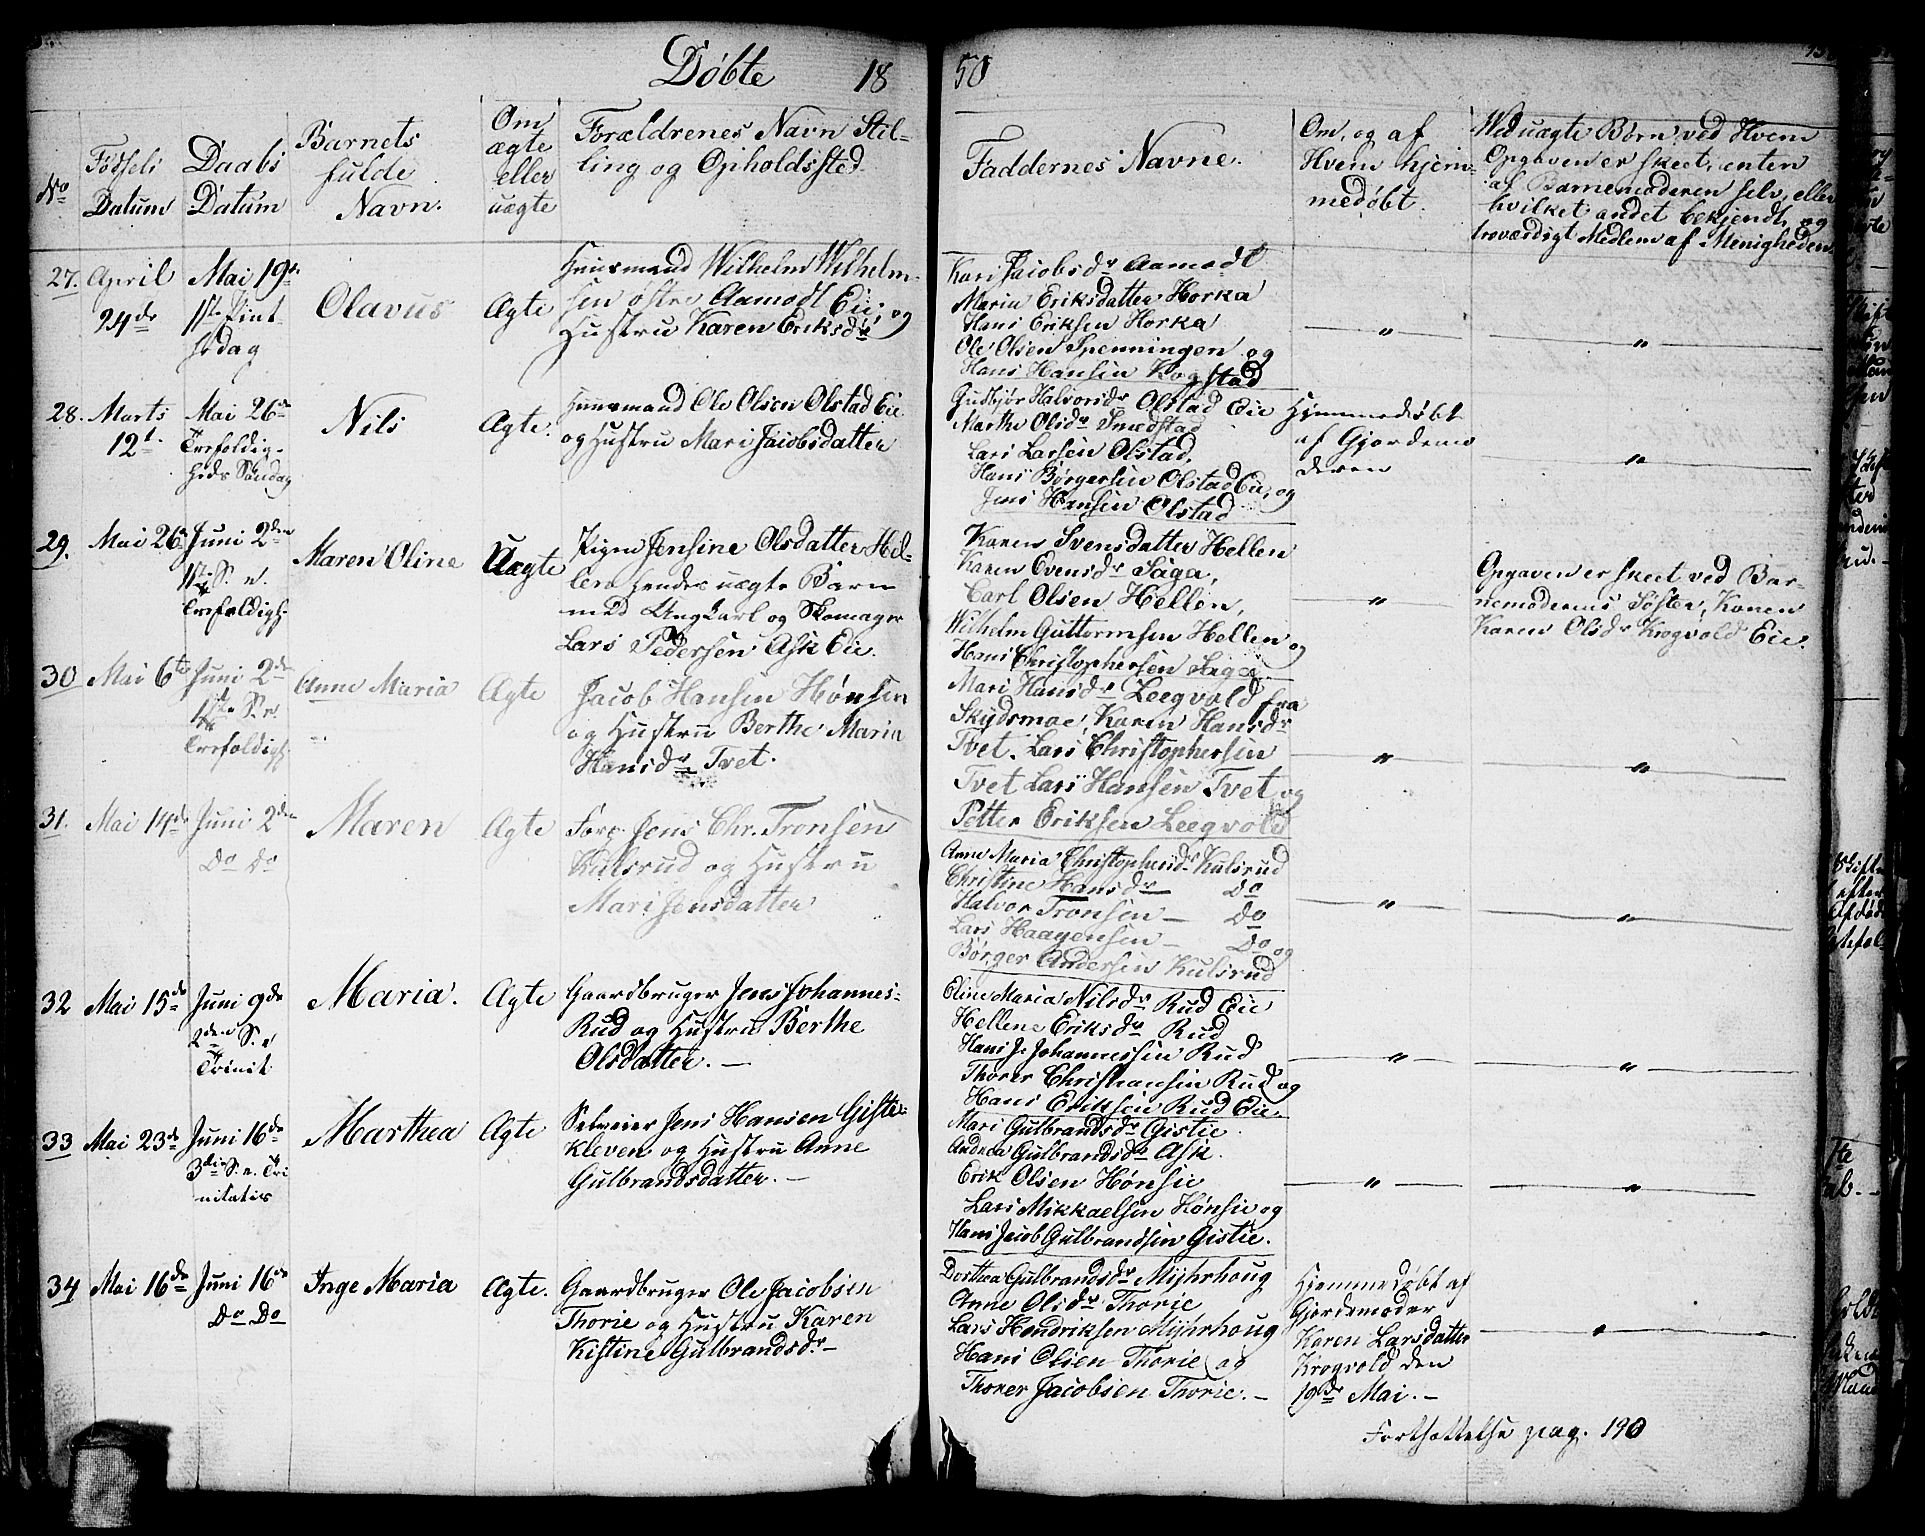 Døbte 1850
No
Fødsels
Datum
Daabs
Datum
Barnets
fulde
Navn.
Om
ægte
eller
uægte
Forældrenes Navn Stil-
ling og Opholdssted.
Faddernes Navne.
Om, og af
Hvem hjem-
medøbt.
Ved uægte Børn ved Hvem
Opgaven er skeet, enten
af Barnemoderen selv, eller
hvilket andet bekjendt og
troværdigt Medlem af Menigheden
27.
April
24de
Mai 19de
1ste Pint-
sedag
Olavus
Ægte
Huusmand Wilhelm Wilhelm-
sen østre Aamodt Eie, og
Hustru Karen Eriksdr
Kari Jacobsdr Aamodt
Maria Eriksdatter Horka
Hans Eriksen Horka
Ole Olsen Spenningen og
Hans Hansen Kogstad
— " —
— " —
28.
Marts
12t.
Mai 26de
Trefoldig-
heds Søndag
Nils
Ægte.
Huusmand Ole Olsen Olstad Eie
og Hustru Mari Jacobsdatter
Gudbjør Halvorsdr Olstad Eie
Marthe Olsdr Smedstad
Lars Larsen Olstad,
Hans Børgersen Olstad Eie, og
Jens Hansen Olstad
Hjemmedøbt
af Gjordemo
deren
— " —
29.
Mai 26
Juni 2den
1ste S. e.
Trefoldigh.
Maren Oline
Uægte
Pigen Jensine Olsdatter Hel-
len hendes uægte Barn
med Ungkarl og Skomager
Lars Pedersen Ask Eie.
Karen Svensdatter Hellen
Karen Evensdr Saga,
Carl Olsen Hellen,
Wilhelm Guttormsen Hellen og
Hans Christophersen Saga
— " —
Opgaven er skeet ved Bar-
nemoderens Søster, Konen
Karen Olsdr Krogvold Eie.
30
Mai 6te
Juni 2de
1ste S. e.
Trefoldigh.
Anne Maria
Ægte
Jacob Hansen Hønsen
og Hustru Berthe Maria
Hansdr Tvet.
Mari Hansdr Leegvold fra
Skydsmoe, Karen Hansdr
Tvet. Lars Christophersen
Tvet Lars Hansen Tvet og
Petter Eriksen Leegvold
— " —
— " —
31.
Mai 14de
Juni 2den
Do Do
Maren
Ægte
Forp. Jens Chr. Tronsen
Kulsrud og Hustru
Mari Jensdatter
Anne Maria Christophersdr Kulsrud
Christine Hansdr Do
Halvor Tronsen — Do
Lars Haagensen — Do og
Børger Andersen Kulsrud
— " —
— " —
32
Mai 15de
Juni 9de
2den S. e
Trinit
Maria.
Ægte
Gaardbruger Jens Johannes-
Rud og Hustru Berthe
Olsdatter. —
Eline Maria Nilsdr Rud Eie
Hellene Eriksdr Rud
Hans J. Johannessen Rud
Thorer Christiansen Rud og
Hans Eriksen Rud Eie
— " —
— " —
33
Mai 23de
Juni 16de
3die S. e. Tri
nitatis
Marthea
Ægte
Selveier Jens Hansen Giste-
kleven og Hustru Anne
Gulbrandsdatter. —
Mari Gulbrandsdr Gistie.
Andrea Gulbrandsdr Ask.
Erik Olsen Hønsie
Lars Mikkaelsen Hønsie og
Hans Jacob Gulbrandsen Gistie.
— " —
— " —
34
Mai 16de
Juni 16de
Do Do
Inge Maria
Ægte.
Gaardbruger Ole Jacobsen
Thorie og Hustru Karen
Kistine Gulbrandsdr —
Dorthea Gulbrandsdr Myhrhoug
Anne Olsdr Thorie
Lars Hendriksen Myhrhoug
Hans Olsen Thorie og
Thorer Jacobsen Thorie. —
Hjemmedøbt af
Gjordemoder
Karen Larsdatter
Krogvold den
19de Mai. —
— " —
Fortsættelse pag. 190